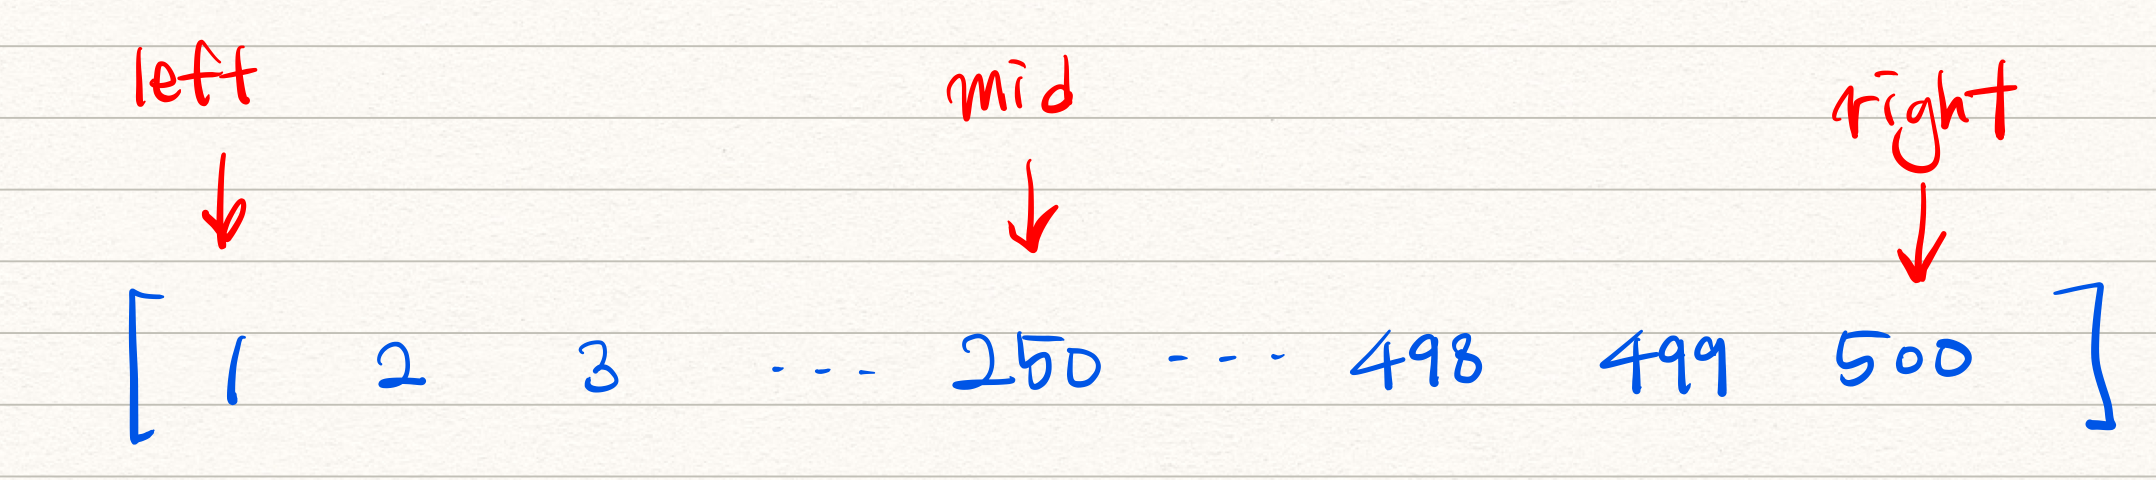 left mid right
[ 1 2 3 --- 250 --- 498 499 500 ]